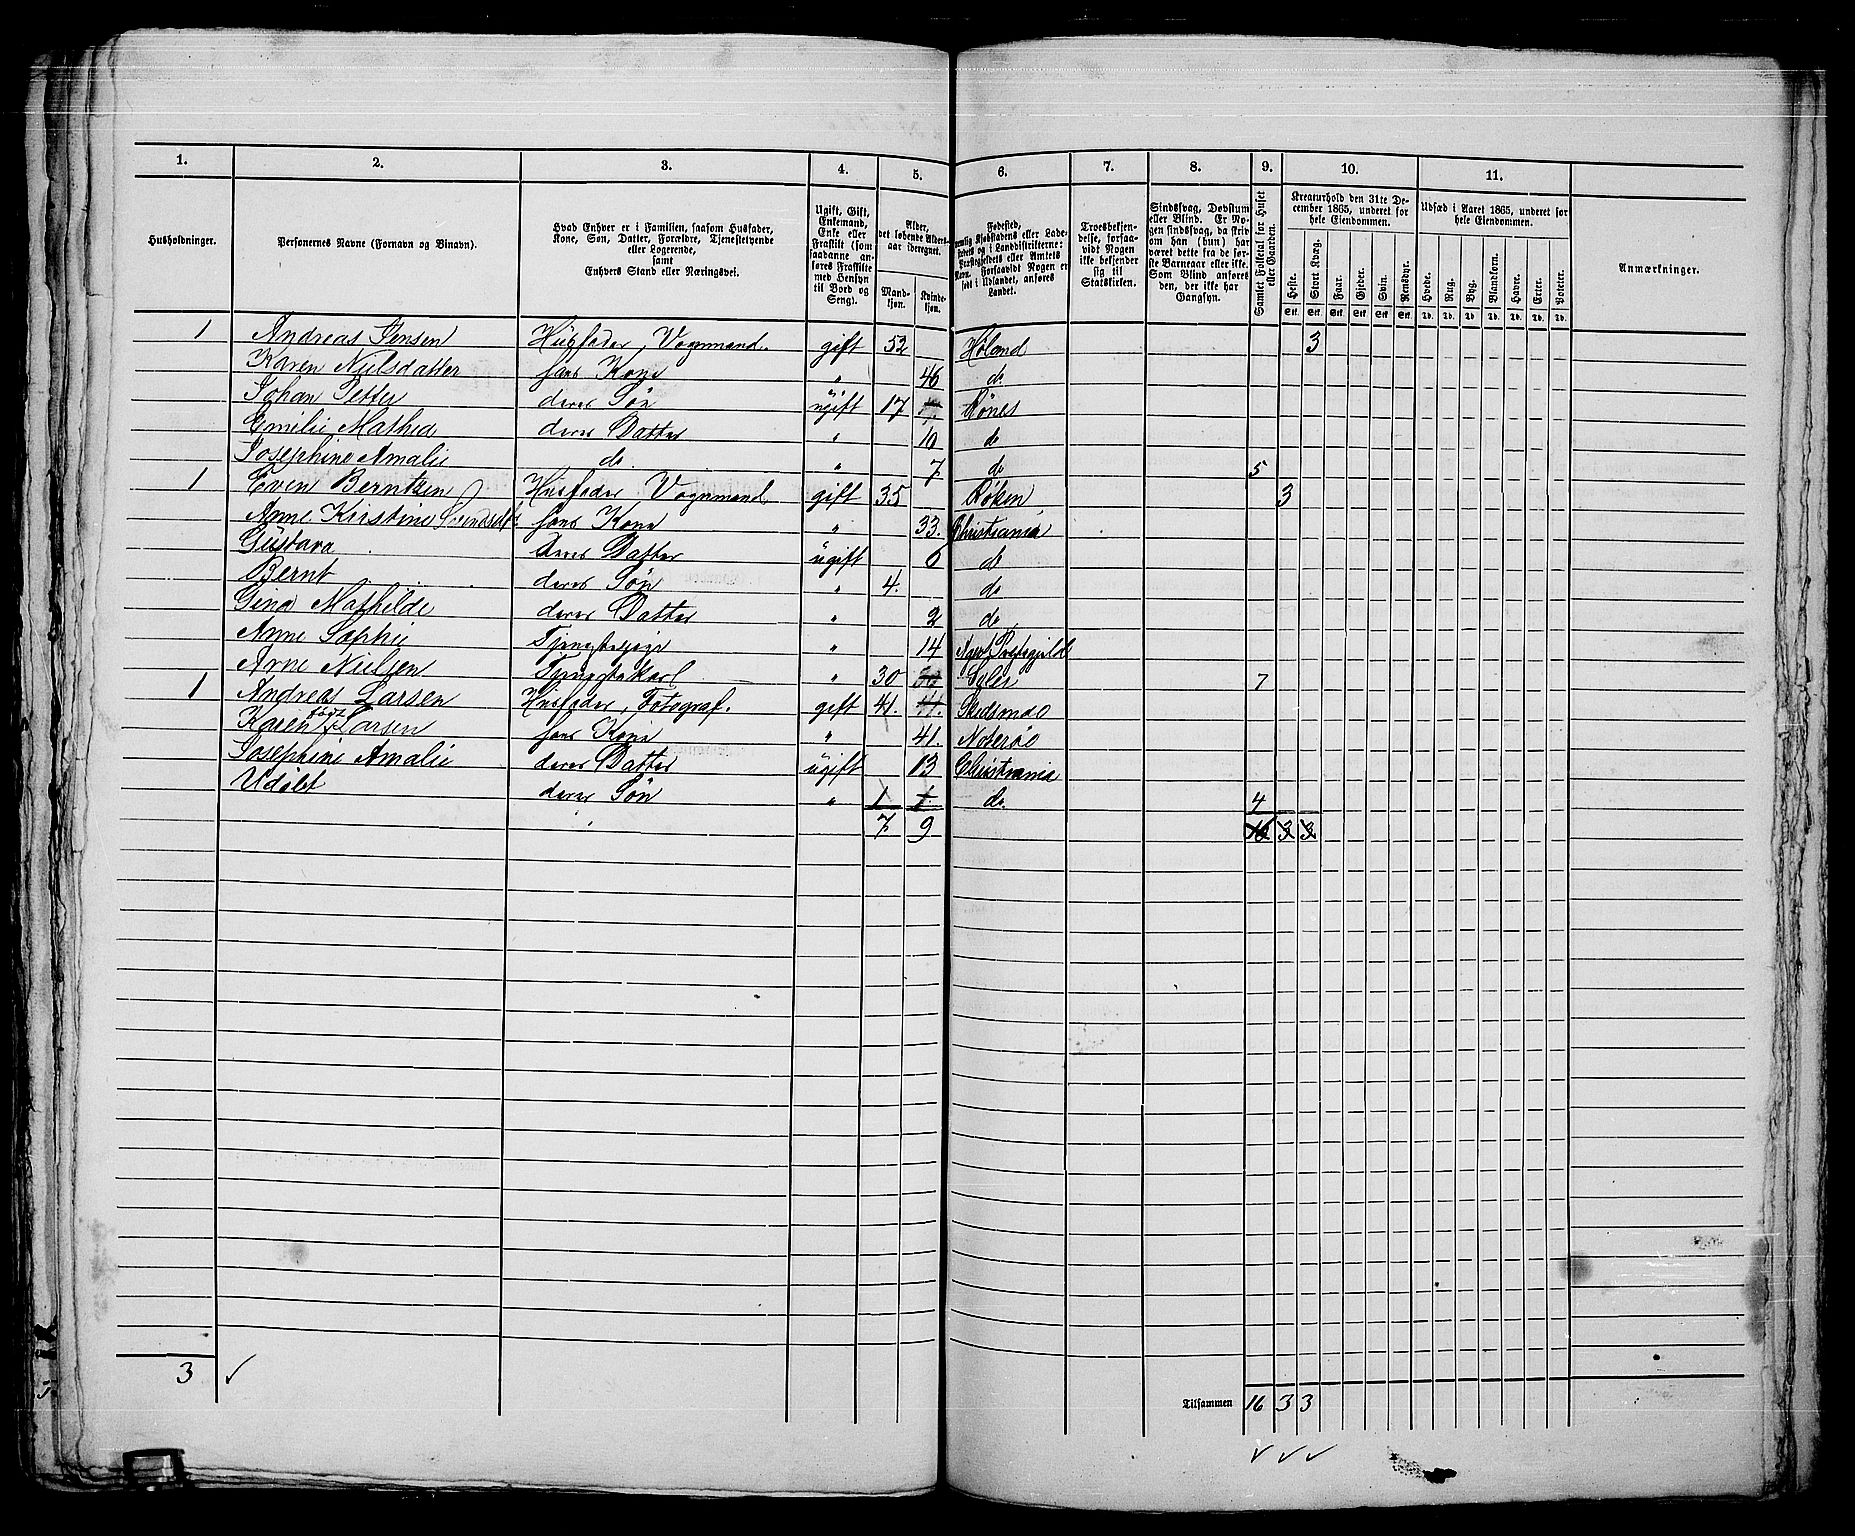 1. 2. 3. 4. 5. 6. 7. 8. 9. 10. 11.
Husholdninger.
Personernes Navne (Fornavn og Binavn).
Hvad Enhver er i Familien, saasom Husfader, Kone, Søn, Datter, Forældre, Tjenestetyende eller Logerende, samt Enhvers Stand eller Næringsvei.
Ugift, Gift, Enkemand, Enke eller Fraskilt (som saadanne anføres Fraskilte med Hensyn til Bord og Seng).
Alder, det løbende Aldersaar iberegnet.
Mandkjøn. Kvindekjøn.
Fødested, nemlig Kjøbstadens eller Ladestedets og i Landdistrikterne: Præstegjeldets eller Amtets Navn. Forsaavidt Nogen er født i Udlandet, anføres Landet.
Troesbekjendelse, forsaavidt Nogen ikke bekjender sig til Statskirken.
Sindssvag, Døvstum eller Blind. Er Nogen sindssvag, da skriv om han (hun) har været dette fra de første Barneaar eller ikke. Som Blind anføres den, der ikke har Gangsyn.
Samlet Folketal for Huset eller Gaarden.
Kreaturhold den 31te December 1865, underet for hele Eiendommen.
Heste. Stort Kvæg. Faar. Gjeder. Svin. Rensdyr.
Stk. Stk. Stk. Stk. Stk. Stk.
Udsæd i Aaret 1865, underet for hele Eiendommen.
Hvede. Rug. Byg. Blandkorn. Havre. Erter. Poteter.
Td. Td. Td. Td. Td. Td. Td.
Anmærkninger.
1 Andreas Jensen Husfader, Vognmand. gift 52 Høland 3
Karen Nielsdatter hans Kone " 46 do.
Johan Petter deres Søn ugift 17 Rønes
Emilie Mathea deres Datter " 10 do
Josephine Amalie do. " 7 do 5
1 Even Berntsen Husfader Vognmand gift 35 Røken 3
Anne Kirstine Svendsdt. hans Kone " 33. Christiania
Gustava deres Datter ugift 6 do
Bernt deres Søn " 4. do
Gina Mathilde deres Datter " 2 do
Anne Sophie Tjenestepige " 14 Næs Præstegjeld
Arne Nielsen Tjenestekarl " 30 30 7
1 Andreas Larsen Husfader, Fotograf. gift 41. 41. Skedsmoe
Karen født Larsen hans Kone " 41. Noterøe
Josephine Amalie deres Datter ugift 13 Christiania
Udølet deres Søn " 1 1. do. 4
7 9 16 3 3
3 ✓
Tilsammen 16 3 3
✓ ✓ ✓